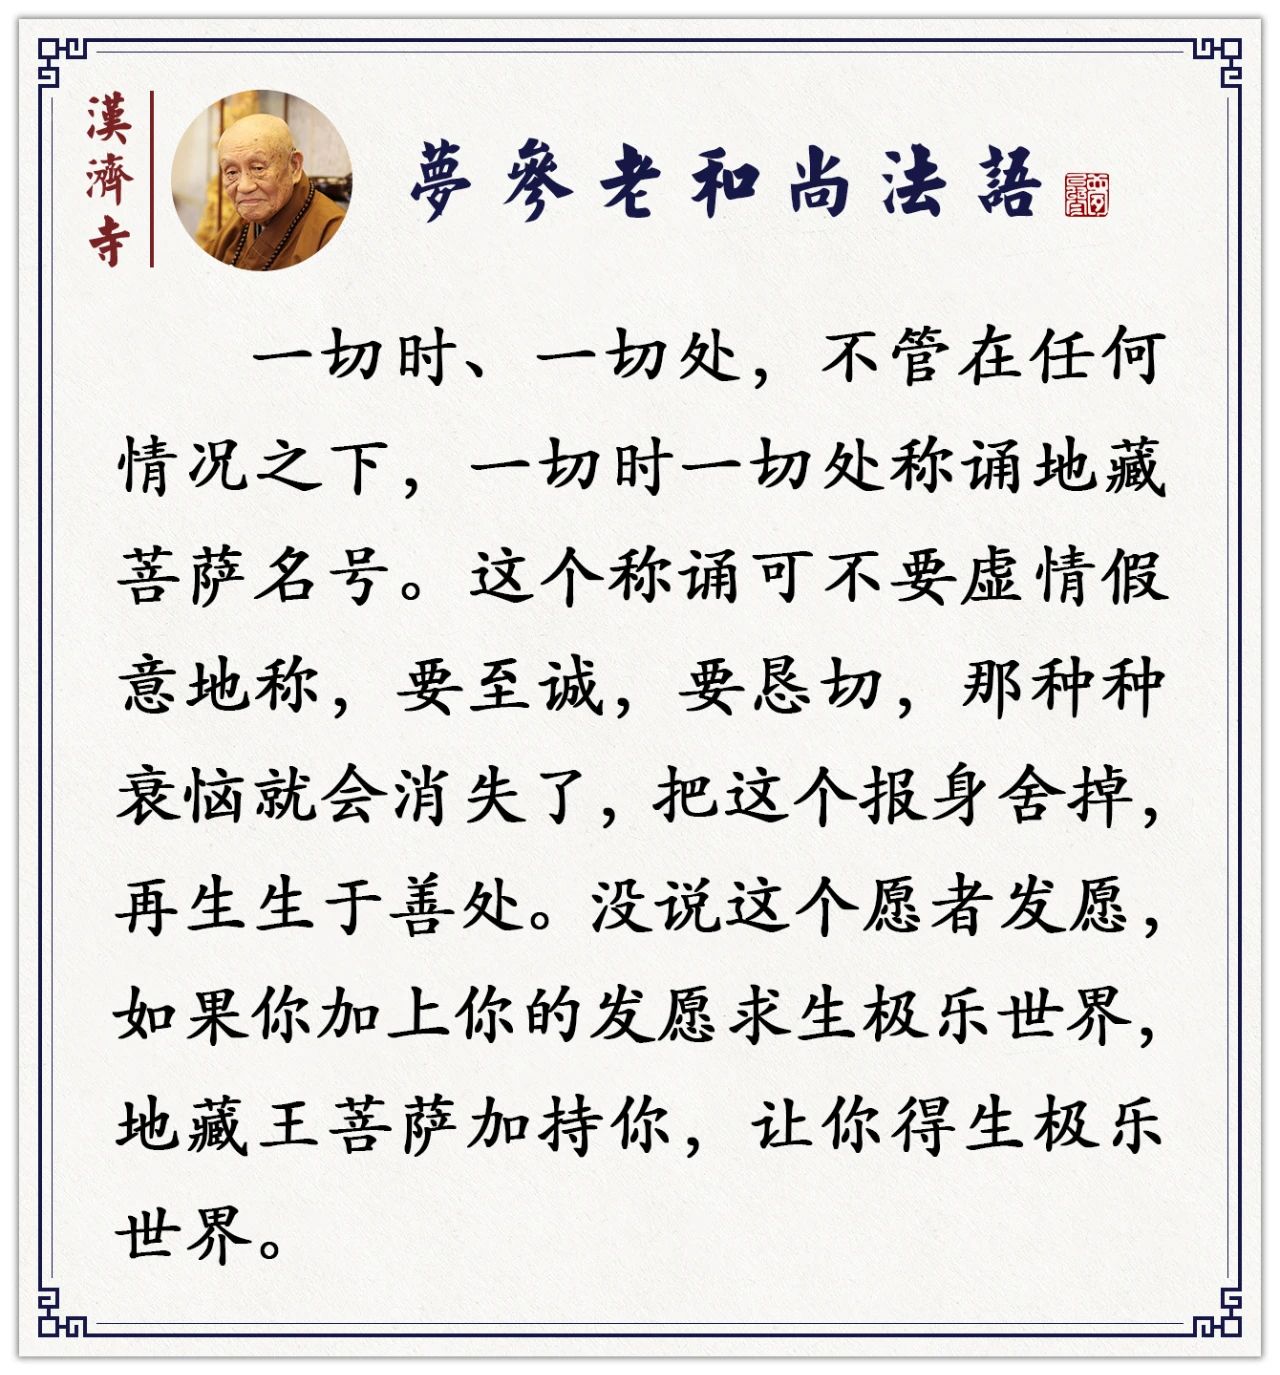 漢濟寺
夢參老和尚法語
一切时、一切处，不管在任何
情况之下，一切时一切处称诵地藏
菩萨名号。这个称诵可不要虚情假
意地称，要至诚，要恳切，那种种
衰恼就会消失了，把这个报身舍掉，
再生生于善处。没说这个愿者发愿，
如果你加上你的发愿求生极乐世界，
地藏王菩萨加持你，让你得生极乐
世界。